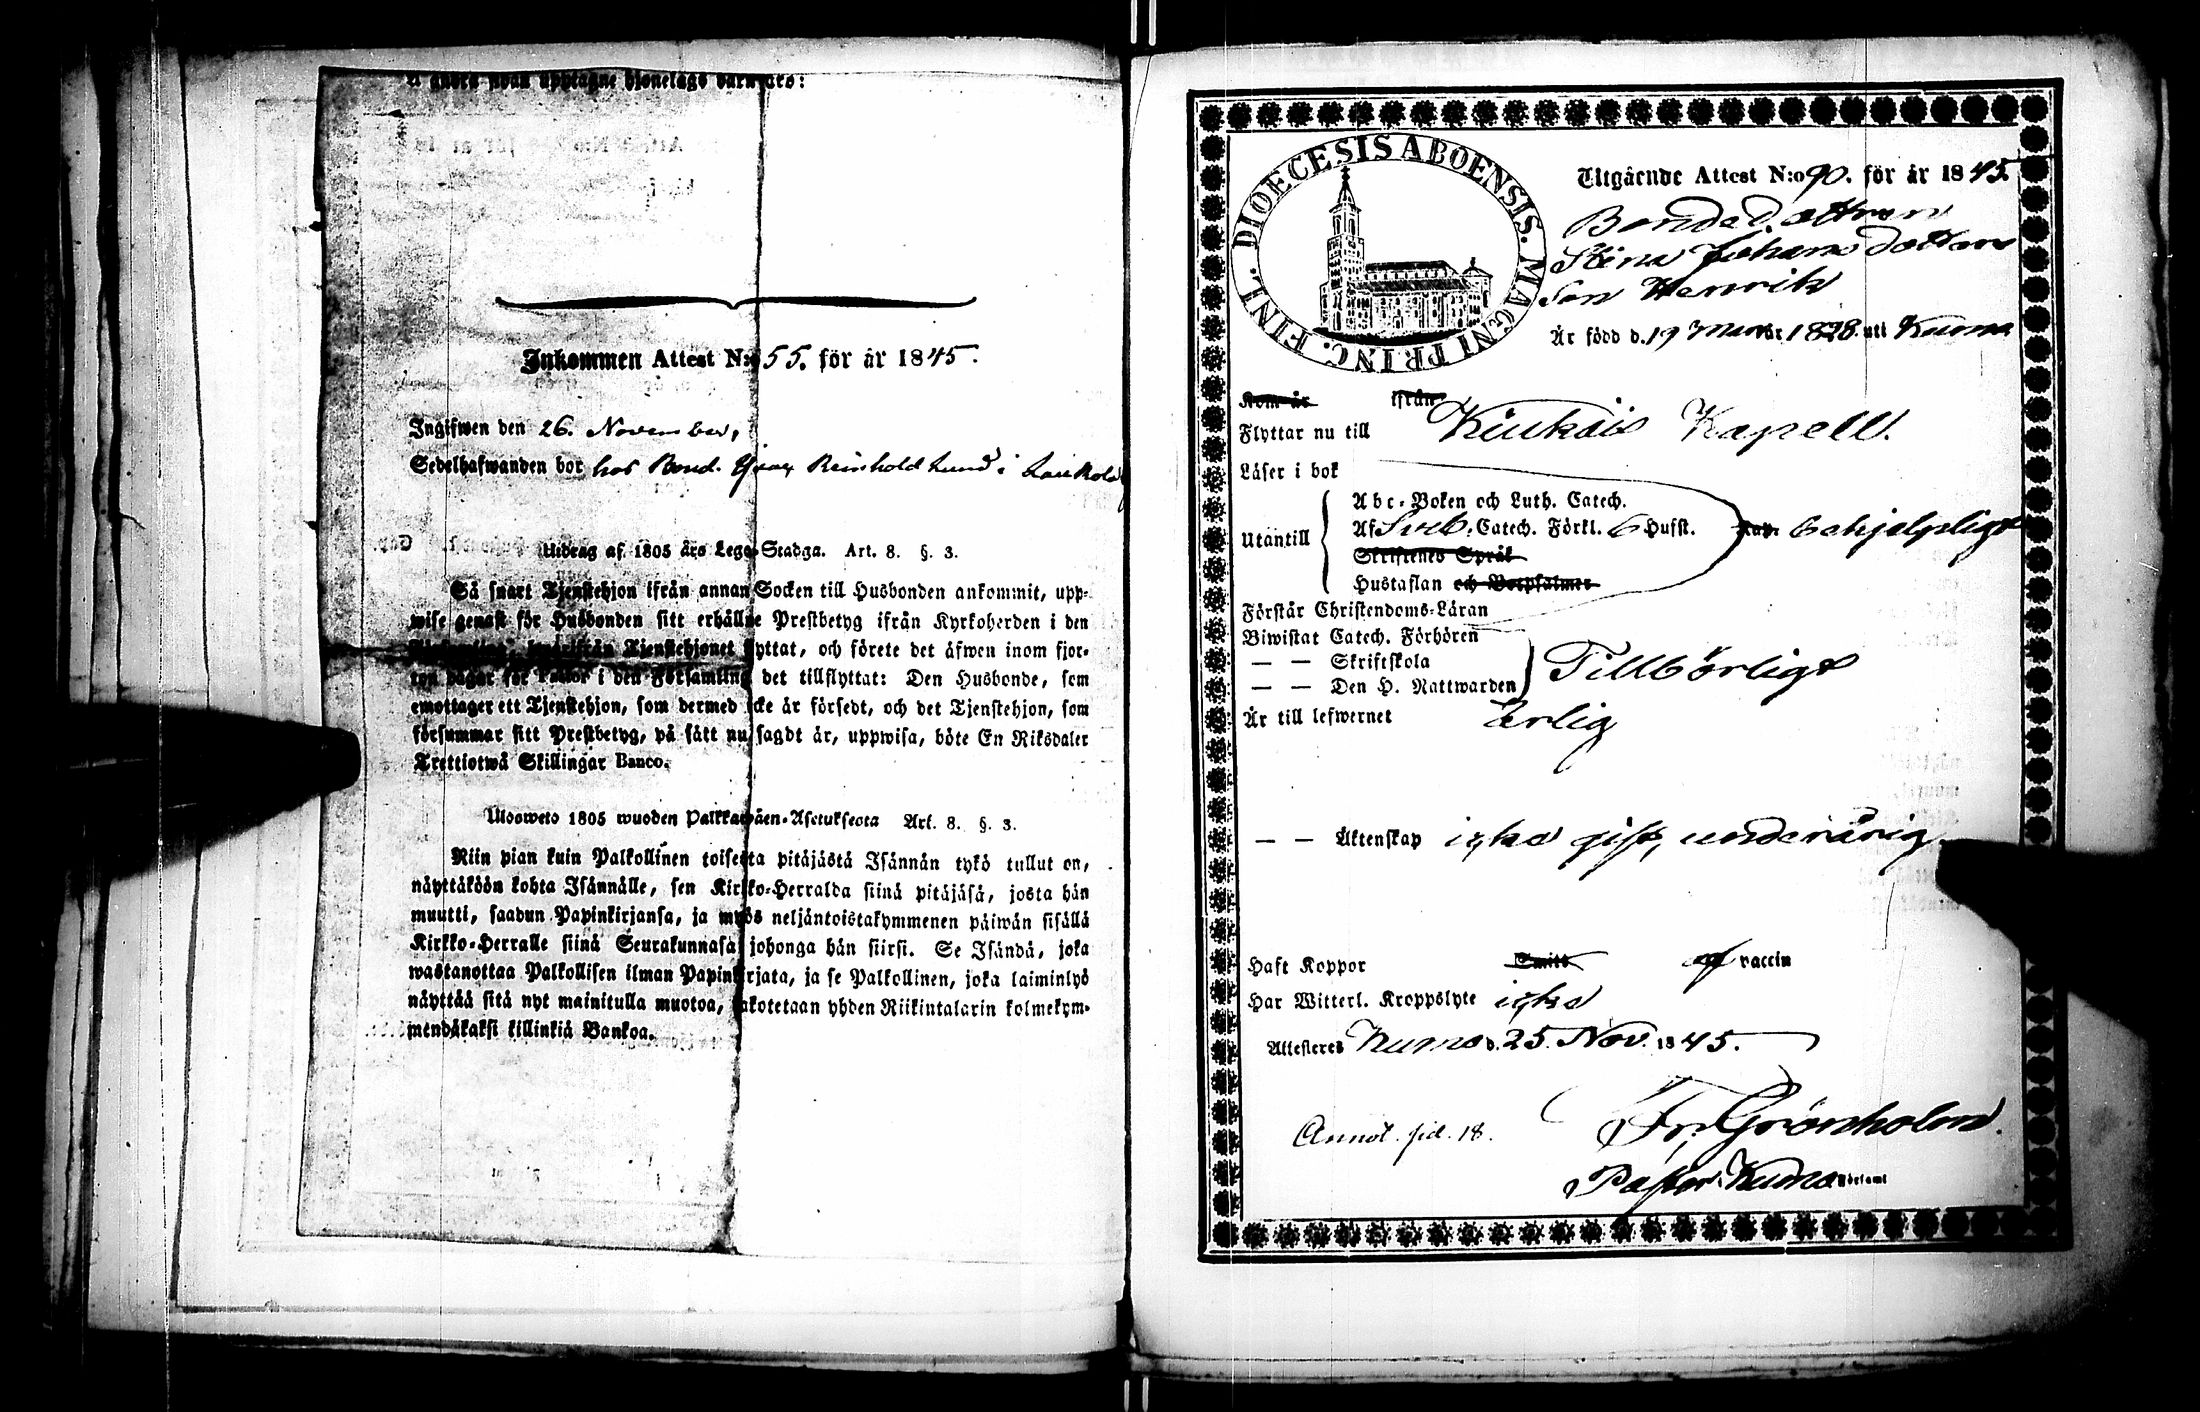 Inkommen Attest N:o 55. för år 1845.
Ingifwen den 26. November,
Sedelhafwanden bor hos Bond. Reinhold Lund i
Utdrag af 1805 års Lego-Stadga. Art. 8. §. 3.
Så snart Tjenstehjon ifrån annan Socken till Husbonden ankommit, upp-
wise genast för Husbonden sitt erhållne Prestbetyg ifrån Kyrkoherden i den
Församling, hwarifrån Tjenstehjonet flyttat, och förete det äfwen inom fjor-
ton dagar för Pastor i den Församling det tillflyttat: Den Husbonde, som
emottager ett Tjenstehjon, som dermed icke är försedt, och det Tjenstehjon, som
försummar sitt Prestbetyg, på sätt nu sagdt är, uppwisa, böte En Riksdaler
Trettiotwå Skillingar Banco.
Ulosweto 1805 wuoden Palkkawäen-Asetuksesta Art. 8. §. 3.
Niin pian kuin Palkollinen toisesta pitäjästä Isännän tykö tullut on,
näyttäköön kohta Isännälle, sen Kirkko-Herralda siinä pitäjäsä, josta hän
muutti, saadun Papinkirjansa, ja myös neljäntoistakymmenen päiwän sisällä
Kirkko-Herralle siinä Seurakunnasa johonga hän siirsi. Se Isändä, joka
wastanottaa Palkollisen ilman Papinkirjata, ja se Palkollinen, joka laiminlyö
näyttää sitä nyt mainitulla muotoa, sakotetaan yhden Riikintalarin kolmekym-
mendäkaksi killinkiä Bankoa.
DIOECESIS ABOENSIS. MAGNI PRINC. FINL.
Utgående Attest N:o 90. för år 1845
Bondedottren
Stina Johans dotters
Son Henrik
Är född d. 19 Mars år 1828. uti Kumo
Kom år ifrån
Flyttar nu till Kiukais Kapell.
Läser i bok
Utantill
Abc-Boken och Luth. Catech.
Af Sveb. Catech. Förkl. 6 Hufst.
Skriftenes Språk
Hustaflan och Botpsalmer
Förstår Christendoms-Läran
Biwistat Catech. Förhören
— — Skriftskola
— — Den H. Nattwarden
Tillbörligt
Är till lefwernet Ärlig
— — Äktenskap icke gift, underårig.
Haft Koppor Smitt af vaccin
Har Witterl. Kroppslyte icke
Attesteres Kumo d. 25. Nov. 1845.
Annot. pid. 18.
Fr. Grönholm.
Pastor i Kumo